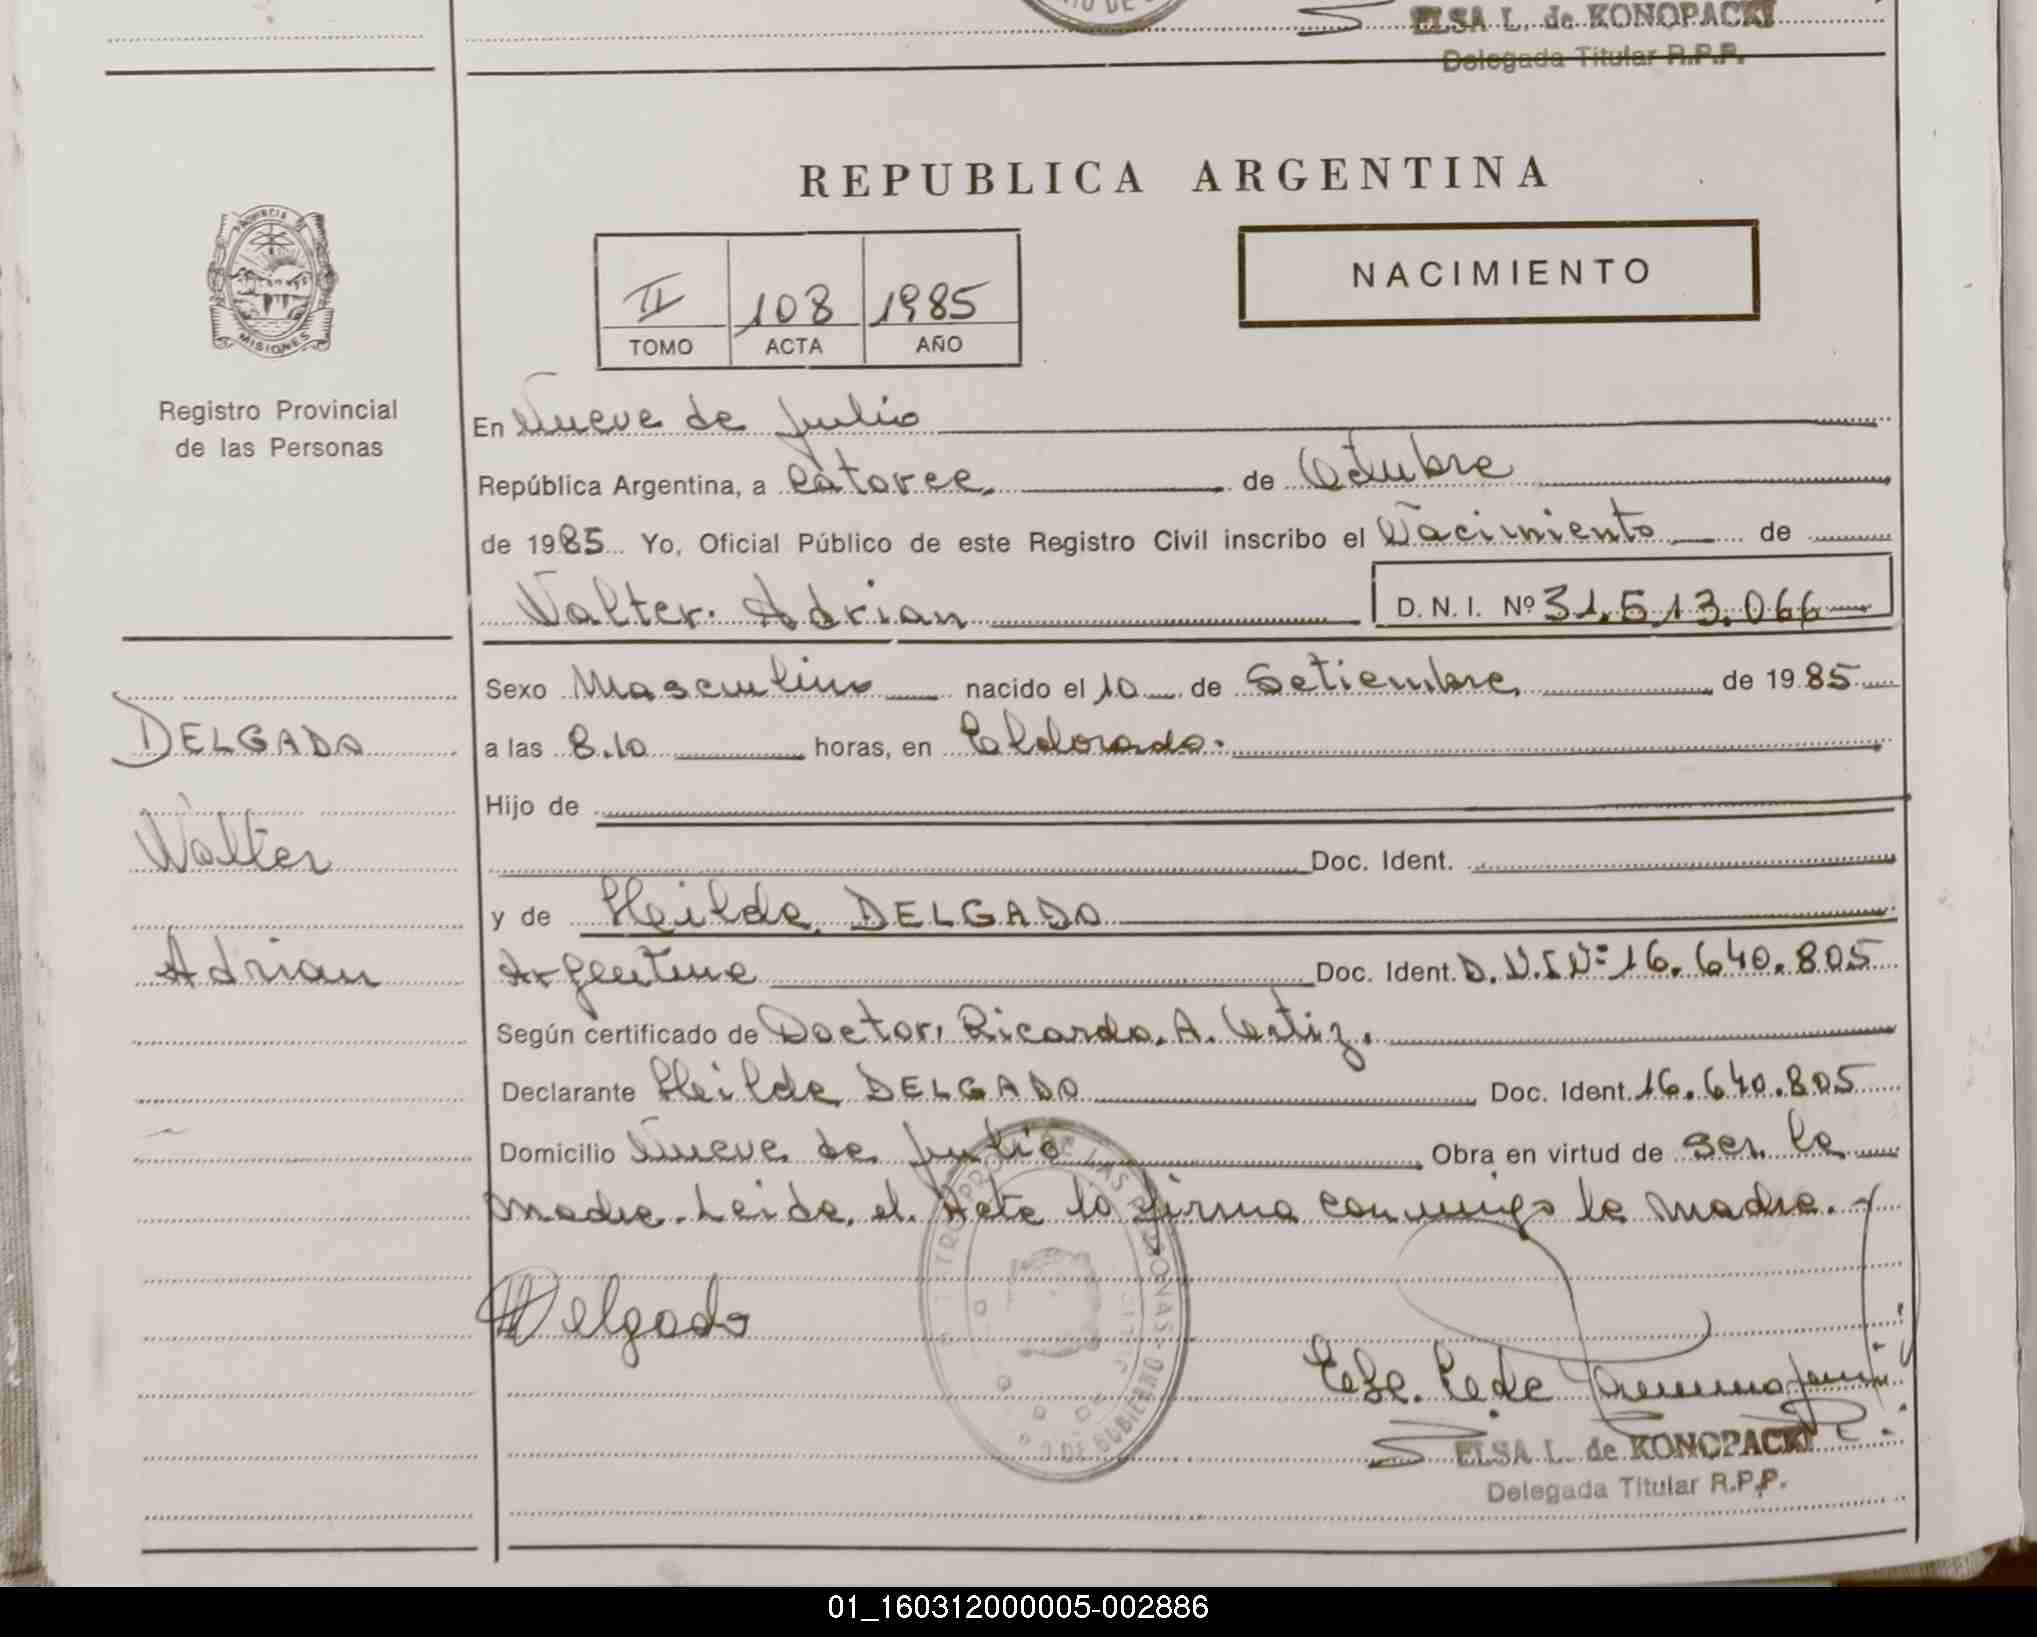 ELSA L. de KONOPACKI
Delegada Titular R.P.P.
REPUBLICA ARGENTINA
PROVINCIA
MISIONES
Registro Provincial
de las Personas
II 108 1985
TOMO ACTA AÑO
NACIMIENTO
En Nueve de Julio
República Argentina, a Catorce de Octubre
de 1985 Yo, Oficial Público de este Registro Civil inscribo el Nacimiento de
Walter Adrian D.N.I. Nº 31.513.066
Sexo Masculino nacido el 10 de Setiembre de 1985
DELGADO
a las 8.10 horas, en Eldorado.
Hijo de
Walter
Doc. Ident.
y de Hilda DELGADO
Adrian
Argentina Doc. Ident. D.N.I Nº 16.640.805
Según certificado de Doctor Ricardo A. Ortiz.
Declarante Hilda DELGADO Doc. Ident. 16.640.805
Domicilio Nueve de Julio Obra en virtud de ser la
madre. Leida el Acta la firma conmigo la madre.
Delgado
ELSA L. de KONOPACKI
Delegada Titular R.P.P.
01_160312000005-002886